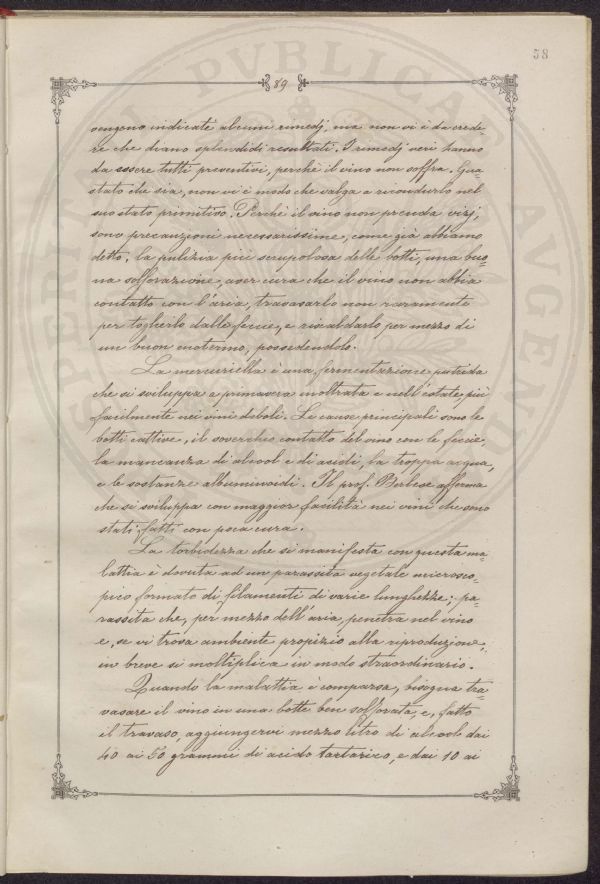 58
89
vengono indicate alcuni rimedj, ma non vi è da crede=
re che diano splendidi resultati. I rimedj veri hanno
da essere tutti preventivi, perchè il vino non soffra. Gua=
stato che sia, non vi è modo che valga a ricondurlo nel
suo stato primitivo. Perchè il vino non prenda vizj,
sono precauzioni necessarissime, come già abbiamo
detto, la pulizia più scrupolosa delle botti, una buo=
na solforazione, aver cura che il vino non abbia
contatto con l'aria, travasarlo non raramente
per toglierlo dalle fecie, e riscaldarlo per mezzo di
un buon enotermo, possedendolo.
La mercuriella è una fermentazione putrida
che si sviluppa a primavera inoltrata e nell'estate, più
facilmente nei vini deboli. Le cause principali sono le
botti cattive, il soverchio contatto del vino con le feccie,
la mancanza di alcool e di acidi, la troppa acqua,
e le sostanze albuminoidi. Il prof. Berlese afferma
che si sviluppa con maggior facilità nei vini che sono
stati fatti con poca cura.
La torbidezza che si manifesta con questa ma=
lattia è dovuta ad un parassita vegetale microsco=
pico formato di filamenti di varie lunghezze; pa=
rassita che, per mezzo dell'aria, penetra nel vino
e, se vi trova ambiente propizio alla riproduzione,
in breve si moltiplica in modo straordinario.
Quando la malattia è comparsa, bisogna tra=
vasare il vino in una botte ben solforata, e, fatto
il travaso, aggiungervi mezzo litro di alcool dai
40 ai 50 grammi di acido tartarico, e dai 10 ai